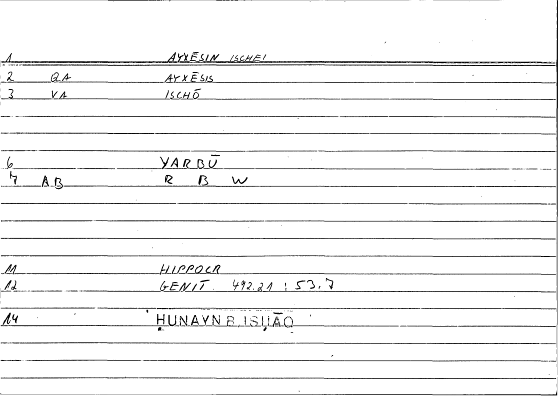 1 AYXĒSIN ISCHEI
2 QA AYXĒSIS
3 VA ISCHŌ
6 YARBŪ
7 AB R B W
11 HIPPOCR
12 GENIT. 492.21 : 53.7
14 ḤUNAYN B. ISḤĀQ